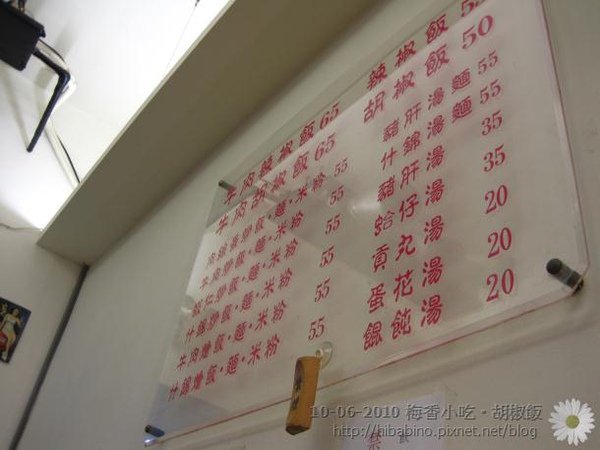 牛肉辣椒飯 65
牛肉胡椒飯 65
肉絲炒飯·麵·米粉 55
牛肉炒飯·麵·米粉 55
蝦仁炒飯·麵·米粉 55
什錦炒飯·麵·米粉 55
牛肉燴飯·麵·米粉 55
什錦燴飯·麵·米粉 55
辣椒飯 55
胡椒飯 50
豬肝湯麵 55
什錦湯麵 55
豬肝湯 35
蛤仔湯 35
貢丸湯 20
蛋花湯 20
餛飩湯 20
禁
10-06-2010 梅香小吃·胡椒飯
http://hibabino.pixnet.net/blog